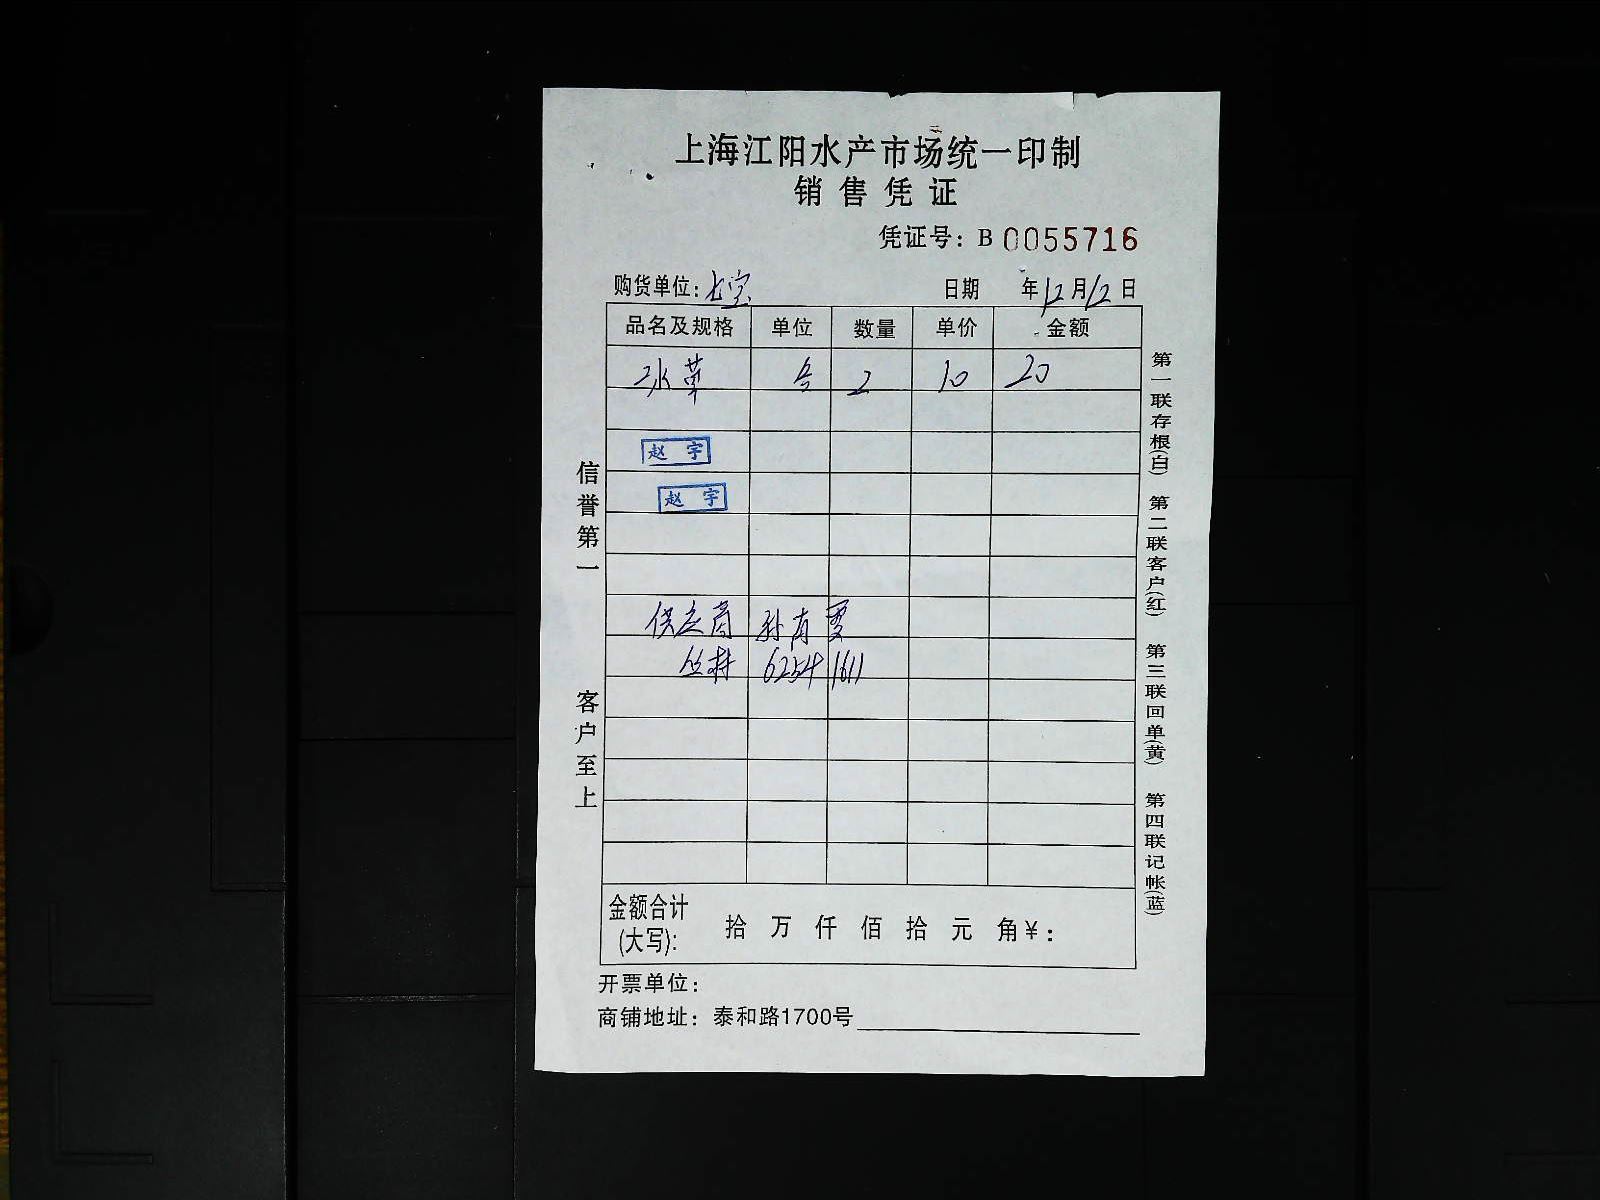 上海江阳水产市场统一印制
销售凭证
凭证号: B 0055716
购货单位: 七宝 日期 年12月12日
品名及规格 单位 数量 单价 金额
水草 2 10 20
赵宇
赵宇
供应商 孙有
丛林 6254 1611
金额合计(大写): 拾 万 仟 佰 拾 元 角 ¥:
开票单位:
商铺地址: 泰和路1700号
信誉第一
客户至上
第一联存根(白)
第二联客户(红)
第三联回单(黄)
第四联记帐(蓝)